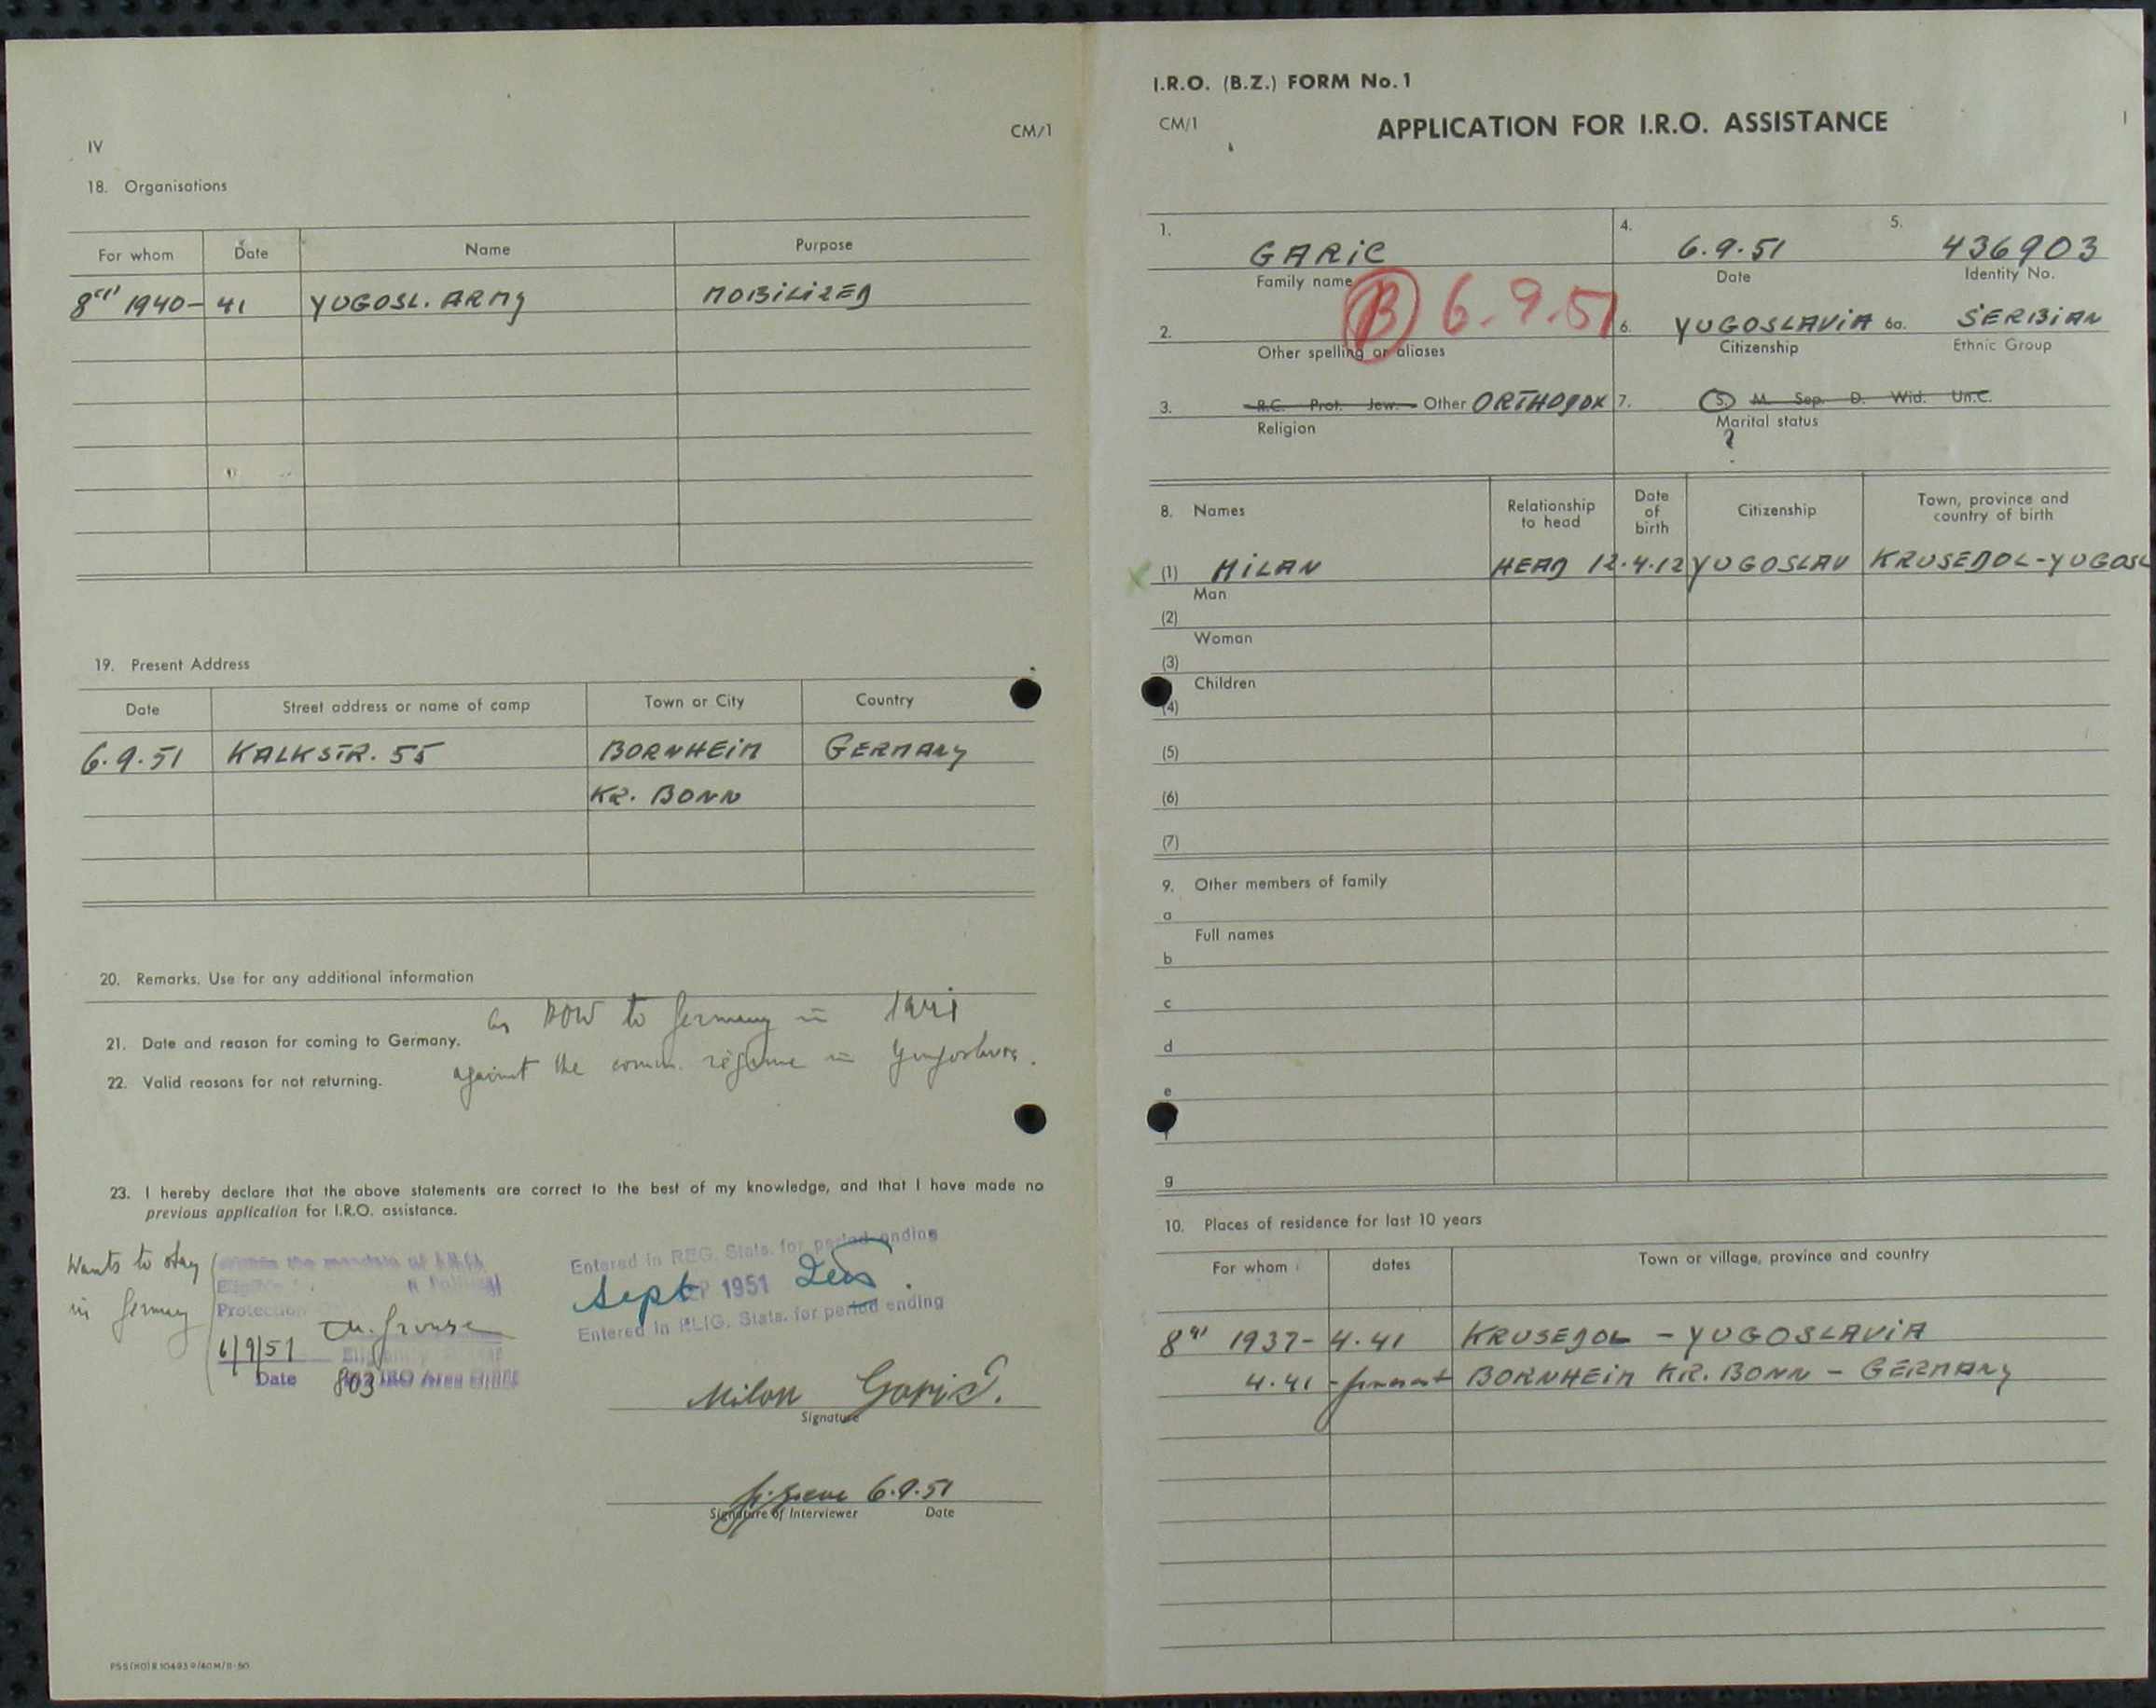 IV
CM/1
18. Organisations
For whom Date Name Purpose
8(1) 1940- 41 YUGOSL. ARMY MOBILIZED
19. Present Address
Date Street address or name of camp Town or City Country
6.9.51 KALKSTR. 55 BORNHEIM GERMANY
KR. BONN
20. Remarks. Use for any additional information
21. Date and reason for coming to Germany. as POW to Germany in 1941
22. Valid reasons for not returning. against the comm. régime in Yugoslavia.
23. I hereby declare that the above statements are correct to the best of my knowledge, and that I have made no
previous application for I.R.O. assistance.
Wants to stay
in Germany
Within the mandate of I.R.O.
Protection
6/9/51
Date
803 IRO Area
Entered in REG. Stats. for period ending
Sept SEP 1951
Entered in ELIG. Stats. for period ending
Milan Garić.
Signature
6.9.51
Signature of Interviewer Date
I.R.O. (B.Z.) FORM No. 1
CM/1 APPLICATION FOR I.R.O. ASSISTANCE I
1. GARIC
Family name
4. 6.9.51
Date
5. 436903
Identity No.
B 6.9.51
2.
Other spelling or aliases
6. YUGOSLAVIA
Citizenship
6a. SERBIAN
Ethnic Group
3. R.C. Prot. Jew. Other ORTHODOX
Religion
7. S. M. Sep. D. Wid. Un.C.
Marital status
?
8. Names Relationship to head Date of birth Citizenship Town, province and country of birth
x (1) MILAN HEAD 12.4.12 YUGOSLAV KRUSEDOL-YUGOSL
Man
(2)
Woman
(3)
Children
(4)
(5)
(6)
(7)
9. Other members of family
a
Full names
b
c
d
e
f
g
10. Places of residence for last 10 years
For whom dates Town or village, province and country
8(1) 1937- 4.41 KRUSEDOL - YUGOSLAVIA
4.41 - present BORNHEIM KR. BONN - GERMANY